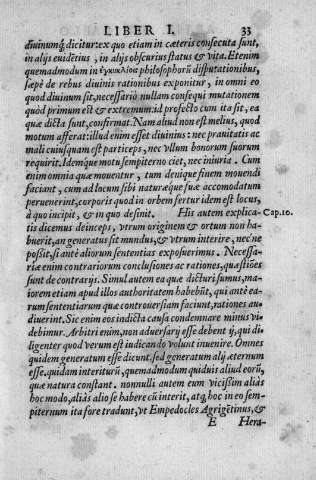 LIBER I. 33
diuinumq́; dicitur: ex quo etiam in cæteris consecuta sunt,
in alijs euidētius, in alijs obscurius status & vita. Etenim
quemadmodum in ἐγκυκλίοις philosophorū disputationibus,
sæpè de rebus diuinis rationibus exponitur, in omni eo
quod diuinum sit, necessariò nullam consequi mutationem
quòd primum est & extremum: id profectò cum ita sit, ea
quæ dicta sunt, confirmat. Nam aliud non est melius, quod
motum afferat: illud enim esset diuinius: nec prauitatis ac
mali cuiusquam est particeps, nec vllum bonorum suorum
requirit. Idemq́ue motu sempiterno ciet, nec iniuria. Cum
enim omnia quæ mouentur, tum denique finem mouendi
faciant, cum ad locum sibi naturæque suæ accomodatum
peruenerint, corporis quod in orbem fertur idem est locus,
à quo incipit, & in quo desinit. His autem explica- Cap.10.
tis dicemus deinceps, vtrum originem & ortum non ha-
buerit, an generatus sit mundus, & vtrum interire, necne
possit, si antè aliorum sententias exposuerimus. Necessa-
riæ enim contrariorum conclusiones ac rationes, quæstiões
sunt de contrarijs. Simul autem ea quæ dicturi sumus, ma-
iorem etiam apud illos authoritatem habebūt, qui antè ea-
rum sententiarum quæ controuersiam faciunt, rationes au-
diuerint. Sic enim eos indicta causa condemnare minus vi-
debimur. Arbitri enim, non aduersarij esse debent ij, qui di-
ligenter quod verum est indicando volunt inuenire. Omnes
quidem generatum esse dicunt: sed generatum alij æternum
esse. quidam interiturū, quemadmodum quiduis aliud eorū,
quæ natura constant. nonnulli autem eum vicißim aliàs
hoc modo, aliàs alio se habere cū interit, atq́; hoc in eo sem-
piternum ita fore tradunt, vt Empedocles Agrigētinus, &
E Hera-